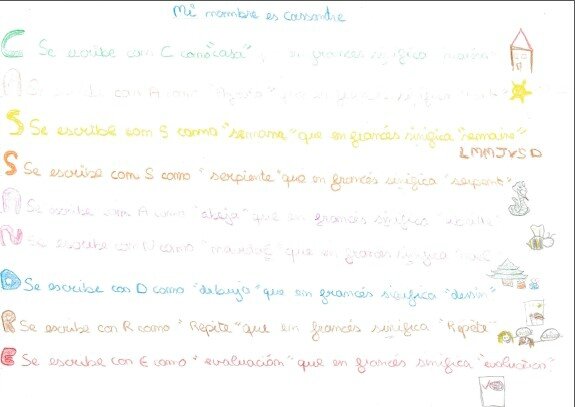 Mi nombre es Cassandre
C Se escribe con C como "casa" y en francés significa maison
A Se escribe con A como "Agosto" que en francés significa
S Se escribe con S como "semana" que en francés sinifica "semaine"
LMMJVSD
S Se escribe con S como "serpiente" que en francés sinifica "serpent"
A Se escribe con A como "abeja" que en francés sinifica "abeille"
N Se escribe con N como que en francés sinifica
D Se escribe con D como "dibujo" que en francés sinifica "dessin"
R Se escribe con R como "Repite" que en francés sinifica "Répète
E Se escribe con E como "evaluación" que en francés sinifica "évaluation"